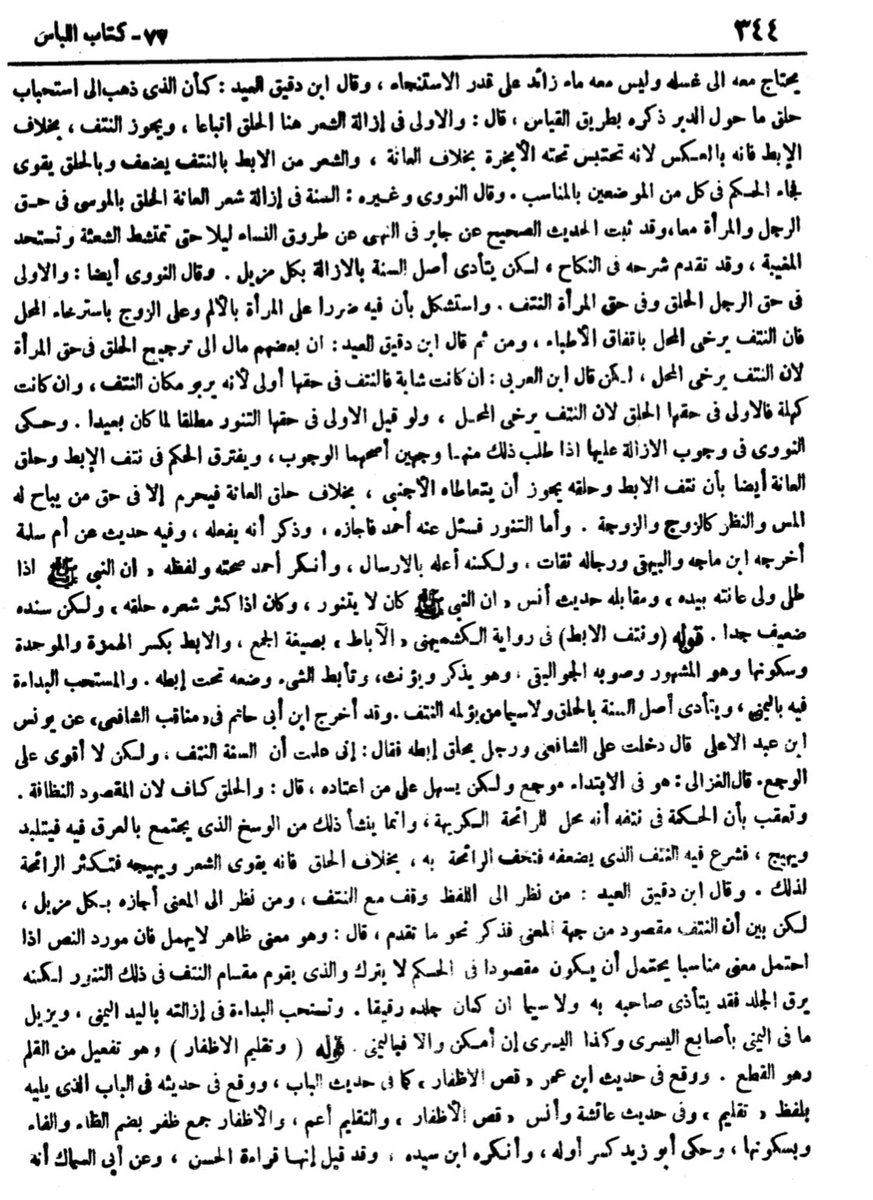 ٣٤٤
٧٧ - كتاب اللباس
يحتاج معه الى غسله وليس معه ماء زائد على قدر الاستنجاء ، وقال ابن دقيق العيد : كأن الذى ذهب الى استحباب
حلق ما حول الدبر ذكره بطريق القياس ، قال : والاولى فى إزالة الشعر هنا الحلق اتباعا ، ويجوز النتف ، بخلاف
الإبط فانه بالعكس لانه تحتبس تحته الأبخرة بخلاف العانة ، والشعر من الابط بالنتف يضعف وبالحلق يقوى
فجاء الحكم فى كل من الموضعين بالمناسب . وقال النووى وغيره : السنة فى إزالة شعر العانة الحلق بالموسى فى حق
الرجل والمرأة معا ، وقد ثبت الحديث الصحيح عن جابر فى النهى عن طروق النساء ليلا حتى تمتشط الشعثة وتستحد
المغيبة ، وقد تقدم شرحه فى النكاح ، لكن يتأدى أصل السنة بالازالة بكل مزيل . وقال النووى أيضا : والاولى
فى حق الرجل الحلق وفى حق المرأة النتف . واستشكل بأن فيه ضررا على المرأة بالألم وعلى الزوج باسترخاء المحل
فان النتف يرخى المحل باتفاق الأطباء ، ومن ثم قال ابن دقيق العيد : ان بعضهم مال الى ترجيح الحلق فى حق المرأة
لان النتف يرخى المحل ، لكن قال ابن العربى : ان كانت شابة فالنتف فى حقها أولى لأنه يربو مكان النتف ، وان كانت
كهلة فالاولى فى حقها الحلق لان النتف يرخى المحل ، ولو قيل الاولى فى حقها التنور مطلقا لما كان بعيدا . وحكى
النووى فى وجوب الازالة عليها اذا طلب ذلك منها وجهين أصحهما الوجوب ، ويفترق الحكم فى نتف الإبط وحلق
العانة أيضا بأن نتف الابط وحلقه يجوز أن يتعاطاه الأجنبى ، بخلاف حلق العانة فيحرم إلا فى حق من يباح له
المس والنظر كالزوج والزوجة . وأما التنور فسئل عنه أحمد فاجازه ، وذكر أنه يفعله ، وفيه حديث عن أم سلمة
أخرجه ابن ماجه والبيهقى ورجاله ثقات ، ولكنه أعله بالارسال ، وأنكر أحمد صحته ولفظه « ان النبى ﷺ اذا
طلى ولى عانته بيده ، ومقابله حديث أنس « ان النبى ﷺ كان لا يتنور ، وكان اذا كثر شعره حلقه ، ولكن سنده
ضعيف جدا . قوله ( ونتف الابط ) فى رواية الكشميهنى « الآباط ، بصيغة الجمع ، والابط بكسر الهمزة والموحدة
وسكونها وهو المشهور وصوبه الجواليقى ، وهو يذكر ويؤنث ، وتأبط الشىء وضعه تحت إبطه . والمستحب البداءة
فيه باليمنى ، ويتأدى أصل السنة بالحلق ولا سيما من يؤلمه النتف . وقد أخرج ابن أبى حاتم فى « مناقب الشافعى ، عن يونس
ابن عبد الاعلى قال دخلت على الشافعى ورجل يحلق إبطه فقال : إنى علمت أن السنة النتف ، ولكن لا أقوى على
الوجع . قال الغزالى : هو فى الابتداء موجع ولكن يسهل على من اعتاده ، قال : والحلق كاف لان المقصود النظافة .
وتعقب بأن الحكمة فى نتفه أنه محل للرائحة الكريهة ، وانما ينشأ ذلك من الوسخ الذى يجتمع بالعرق فيه فيتلبد
ويهيج ، فشرع فيه النتف الذى يضعفه فتخف الرائحة به ، بخلاف الحلق فانه يقوى الشعر ويهيجه فتكثر الرائحة
لذلك . وقال ابن دقيق العيد : من نظر الى اللفظ وقف مع النتف ، ومن نظر الى المعنى أجازه بكل مزيل ،
لكن بين أن النتف مقصود من جهة المعنى فذكر نحو ما تقدم ، قال : وهو معنى ظاهر لا يهمل فان مورد النص اذا
احتمل معنى مناسبا يحتمل أن يكون مقصودا فى الحكم لا يترك والذى يقوم مقام النتف فى ذلك التنور لكنه
يرق الجلد فقد يتأذى صاحبه به ولا سيما ان كان جلده رقيقا . وتستحب البداءة فى إزالته باليد اليمنى ، ويزيل
ما فى اليمنى بأصابع اليسرى وكذا اليسرى إن أمكن والا فباليمنى . قوله ( وتقليم الاظفار ) وهو تفعيل من القلم
وهو القطع . ووقع فى حديث ابن عمر « قص الاظفار ، كما فى حديث الباب ، ووقع فى حديثه فى الباب الذى يليه
بلفظ « تقليم ، وفى حديث عائشة وأنس « قص الأظفار ، والتقليم أعم ، والأظفار جمع ظفر بضم الظاء والفاء
وبسكونها ، وحكى أبو زيد كسر أوله ، وأنكره ابن سيده ، وقد قيل إنها قراءة الحسن ، وعن أبى السماك أنه